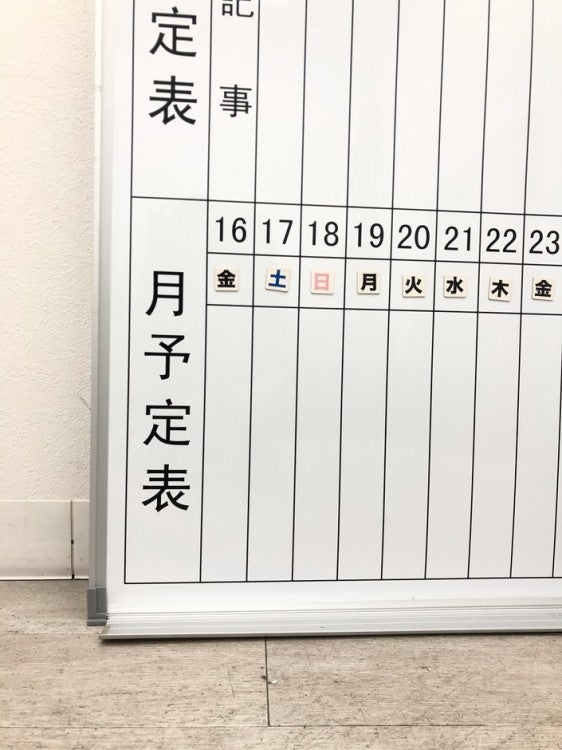 定表
記事
16 17 18 19 20 21 22 23
金 土 日 月 火 水 木 金
月予定表